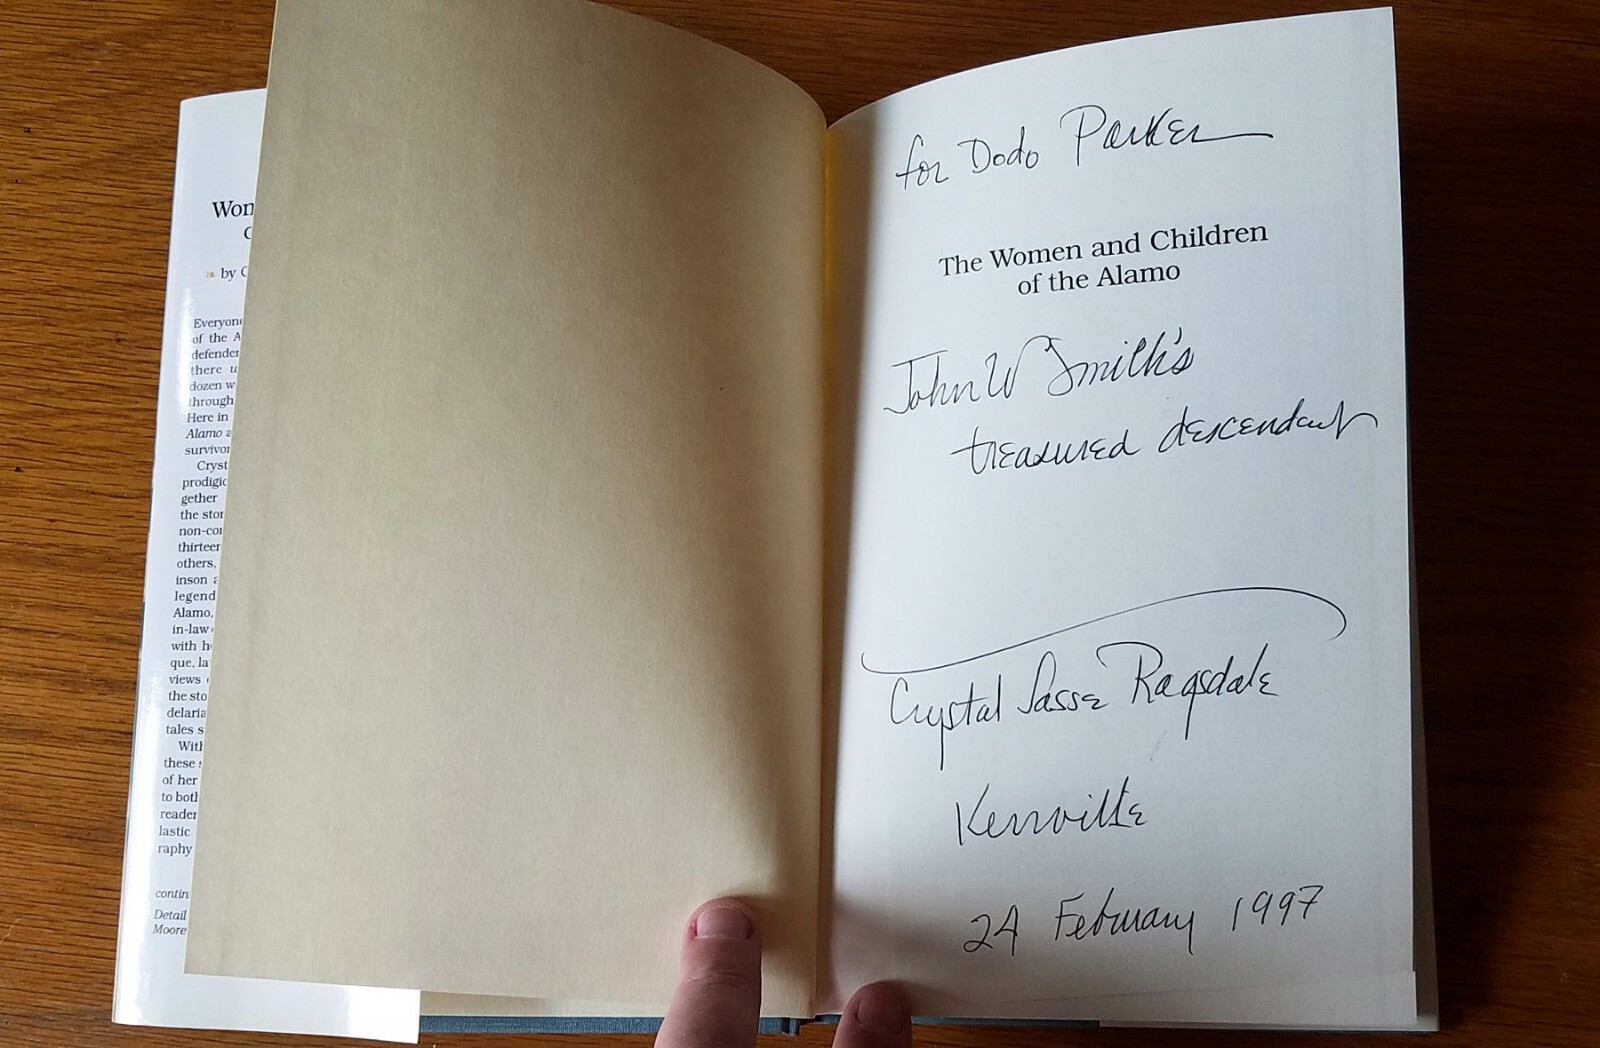 Won
by C
Everyone
of the A
defender
there u
dozen w
through
Here in
Alamo a
survivor
Cryst
prodigic
gether
the stor
non-cor
thirteer
others,
inson a
legend
Alamo,
in-law
with h
que, la
views
the sto
delaria
tales s
With
these s
of her
to both
reader
lastic
raphy
contin
Detail
Moore
for Dodo Parker
The Women and Children
of the Alamo
John W Smith's
treasured descendant
Crystal Sasse Ragsdale
Kerrville
24 February 1997